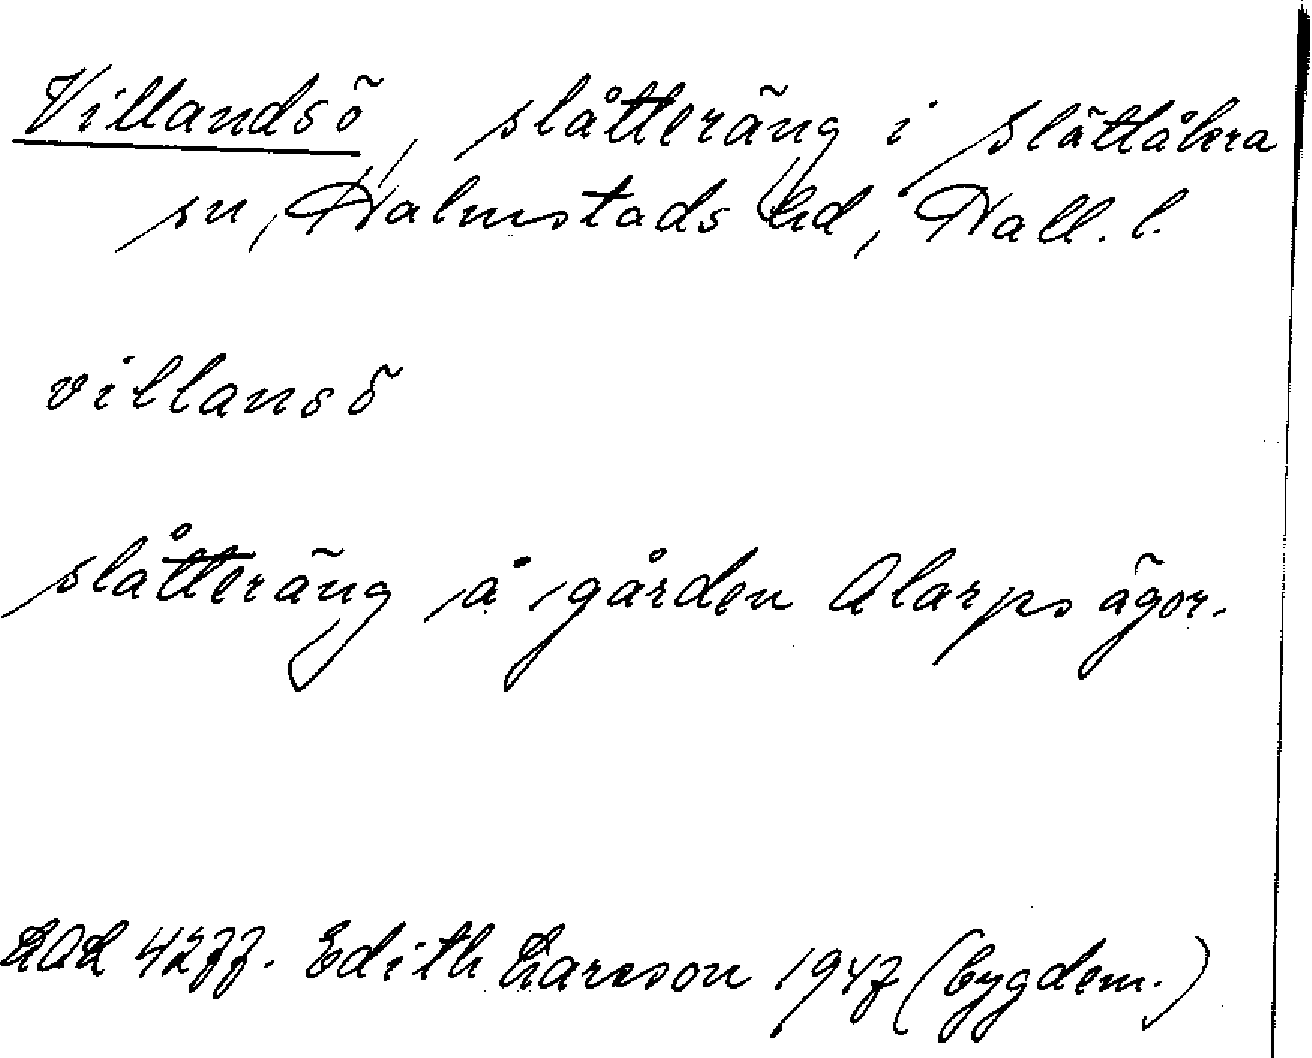 Villandsö, slåtteräng i Slättåkra
sn, Halmstads hd, Hall. l.
villansö
slåtteräng å gården Alarps ägor.
LAL 4277. Edith Larsson 1947 (bygdem.)